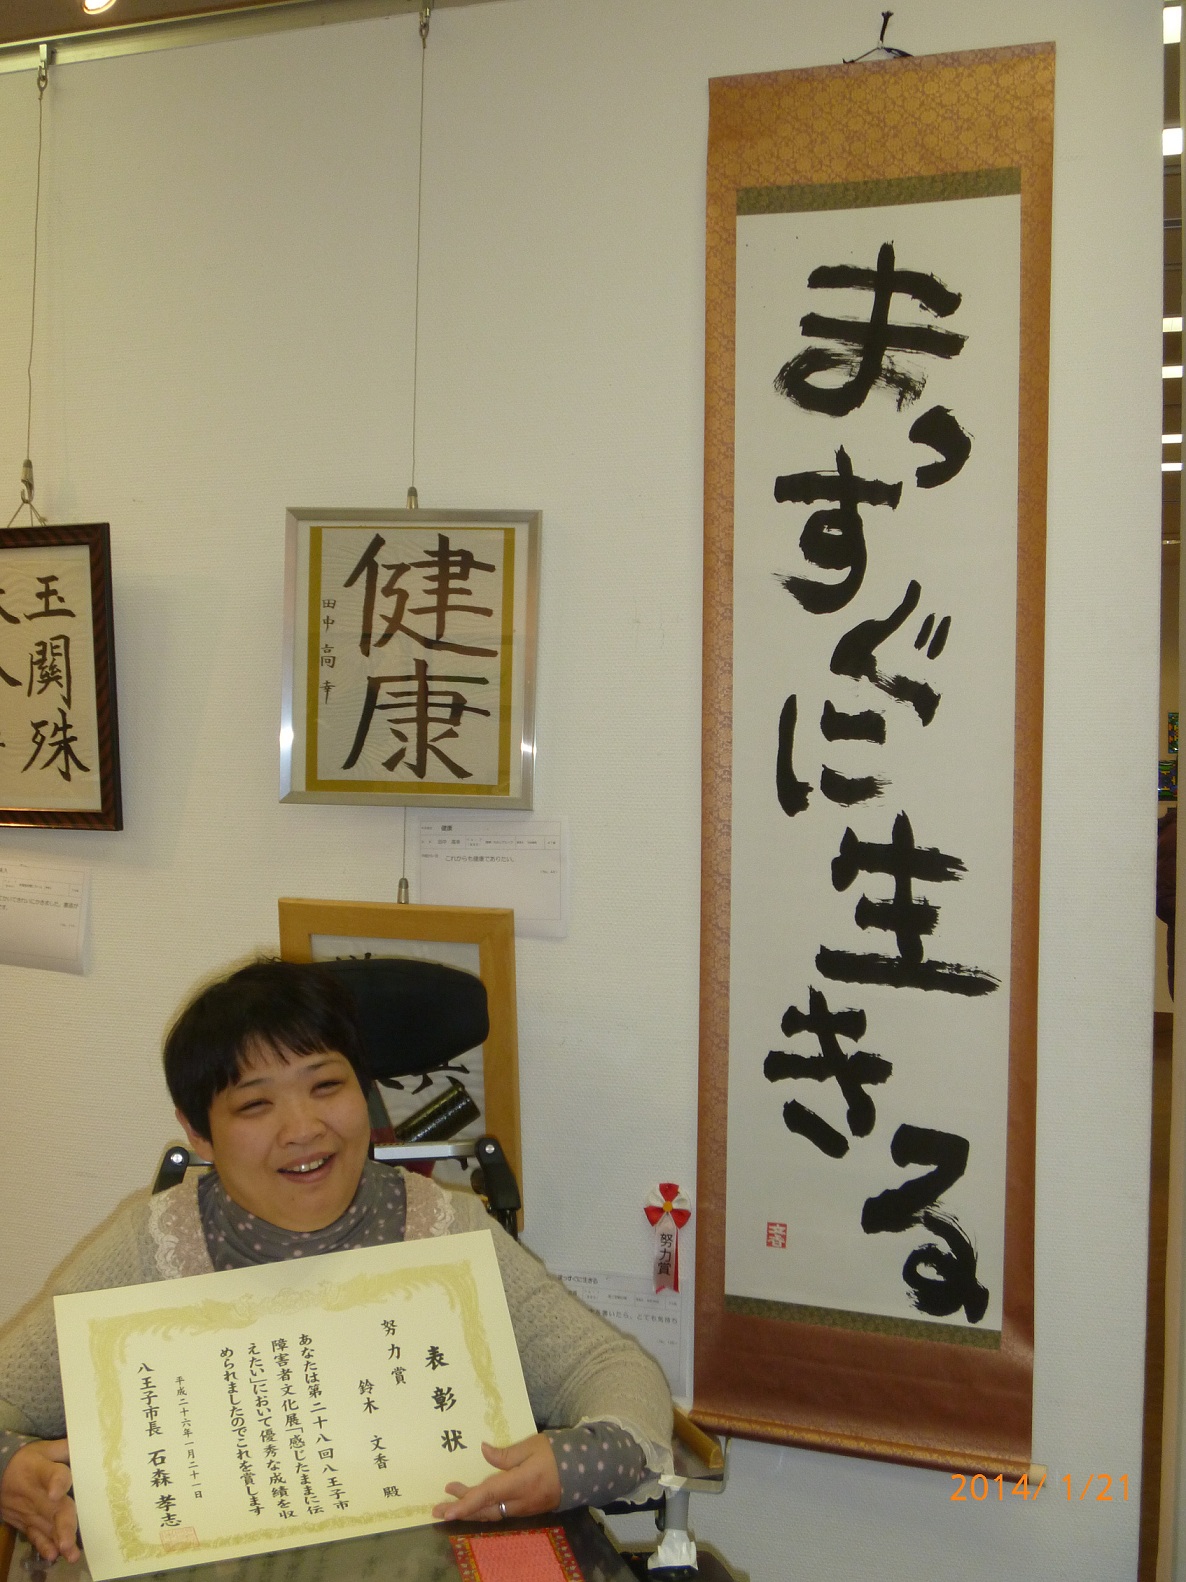 まっすぐに生きる
文香
健康
田中高幸
玉關殊
健康
これからも健康でありたい。
努力賞
まっすぐに生きる
表彰状
努力賞
鈴木 文香 殿
あなたは第二十八回八王子市
障害者文化展「感じたままに伝
えたい」において優秀な成績を収
められましたのでこれを賞します
平成二十六年一月二十一日
八王子市長 石森 孝志
2014/ 1/21